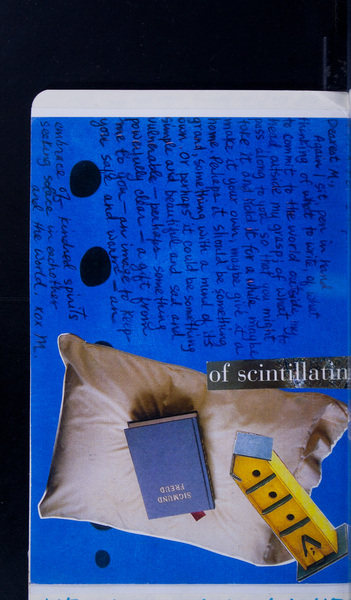 Dearest M,
Again I set pen in hand
thinking of what to write, of what
to commit to the world outside my
head, outside my grasp, of what I
pass along to you so that you might
take it and hold it for a while, maybe
make it your own, maybe give it a
home. Perhaps it should be something
grand, something with a mind of its
own. Or perhaps it could be something
simple and beautiful and sad and
vulnerable – perhaps something
powerfully clear – a gift from
me to you – an image to keep
you safe and warm – an
embrace of kindred spirits
seeking solace in eachother
and the world. xox M.
of scintillatin
SIGMUND
FREUD